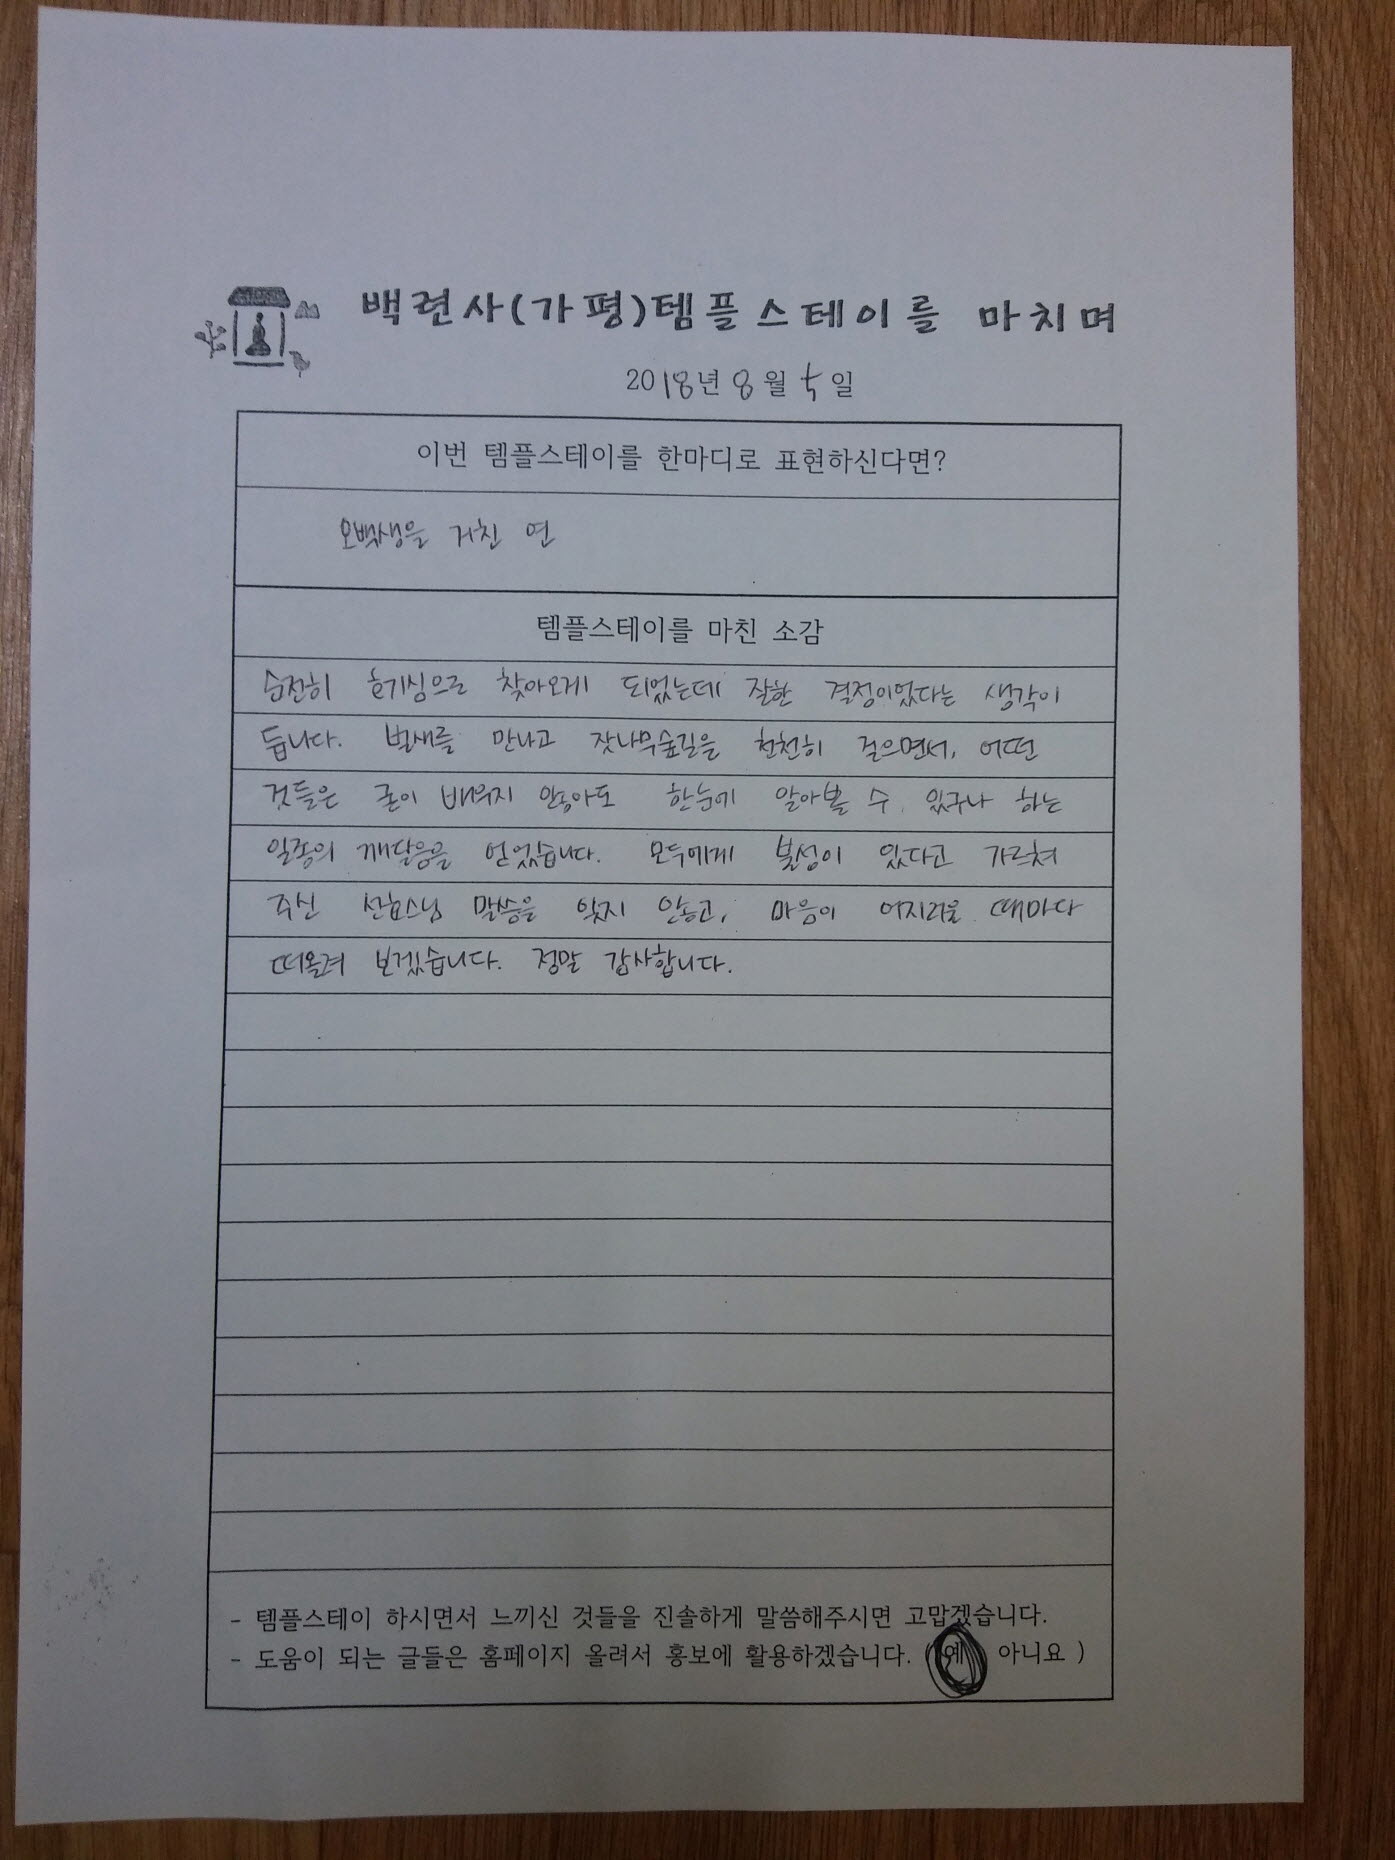 백련사(가평)템플스테이를 마치며
2018년 8월 5일
이번 템플스테이를 한마디로 표현하신다면?
오백생을 거친 연
템플스테이를 마친 소감
순전히 호기심으로 찾아오게 되었는데 잘한 결정이었다는 생각이
듭니다. 벌새를 만나고 잣나무숲길을 천천히 걸으면서, 어떤
것들은 굳이 배우지 않아도 한눈에 알아볼 수 있구나 하는
일종의 깨달음을 얻었습니다. 모두에게 불성이 있다고 가르쳐
주신 선효스님 말씀을 잊지 않고, 마음이 어지러울 때마다
떠올려 보겠습니다. 정말 감사합니다.
- 템플스테이 하시면서 느끼신 것들을 진솔하게 말씀해주시면 고맙겠습니다.
- 도움이 되는 글들은 홈페이지 올려서 홍보에 활용하겠습니다. ( 예 아니요 )